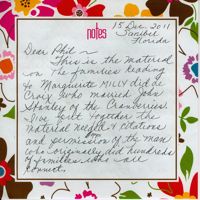 notes
15 Dec. 2011
Sanibel
Florida
Dear Phil ~
This is the material
on the families leading
to Marguerite MILLY did de
Cray who married John
Stanley of the Cranberries
I've put together the
material needed & citations
and permission of the man
who originally did hundreds
of families who all
connect.